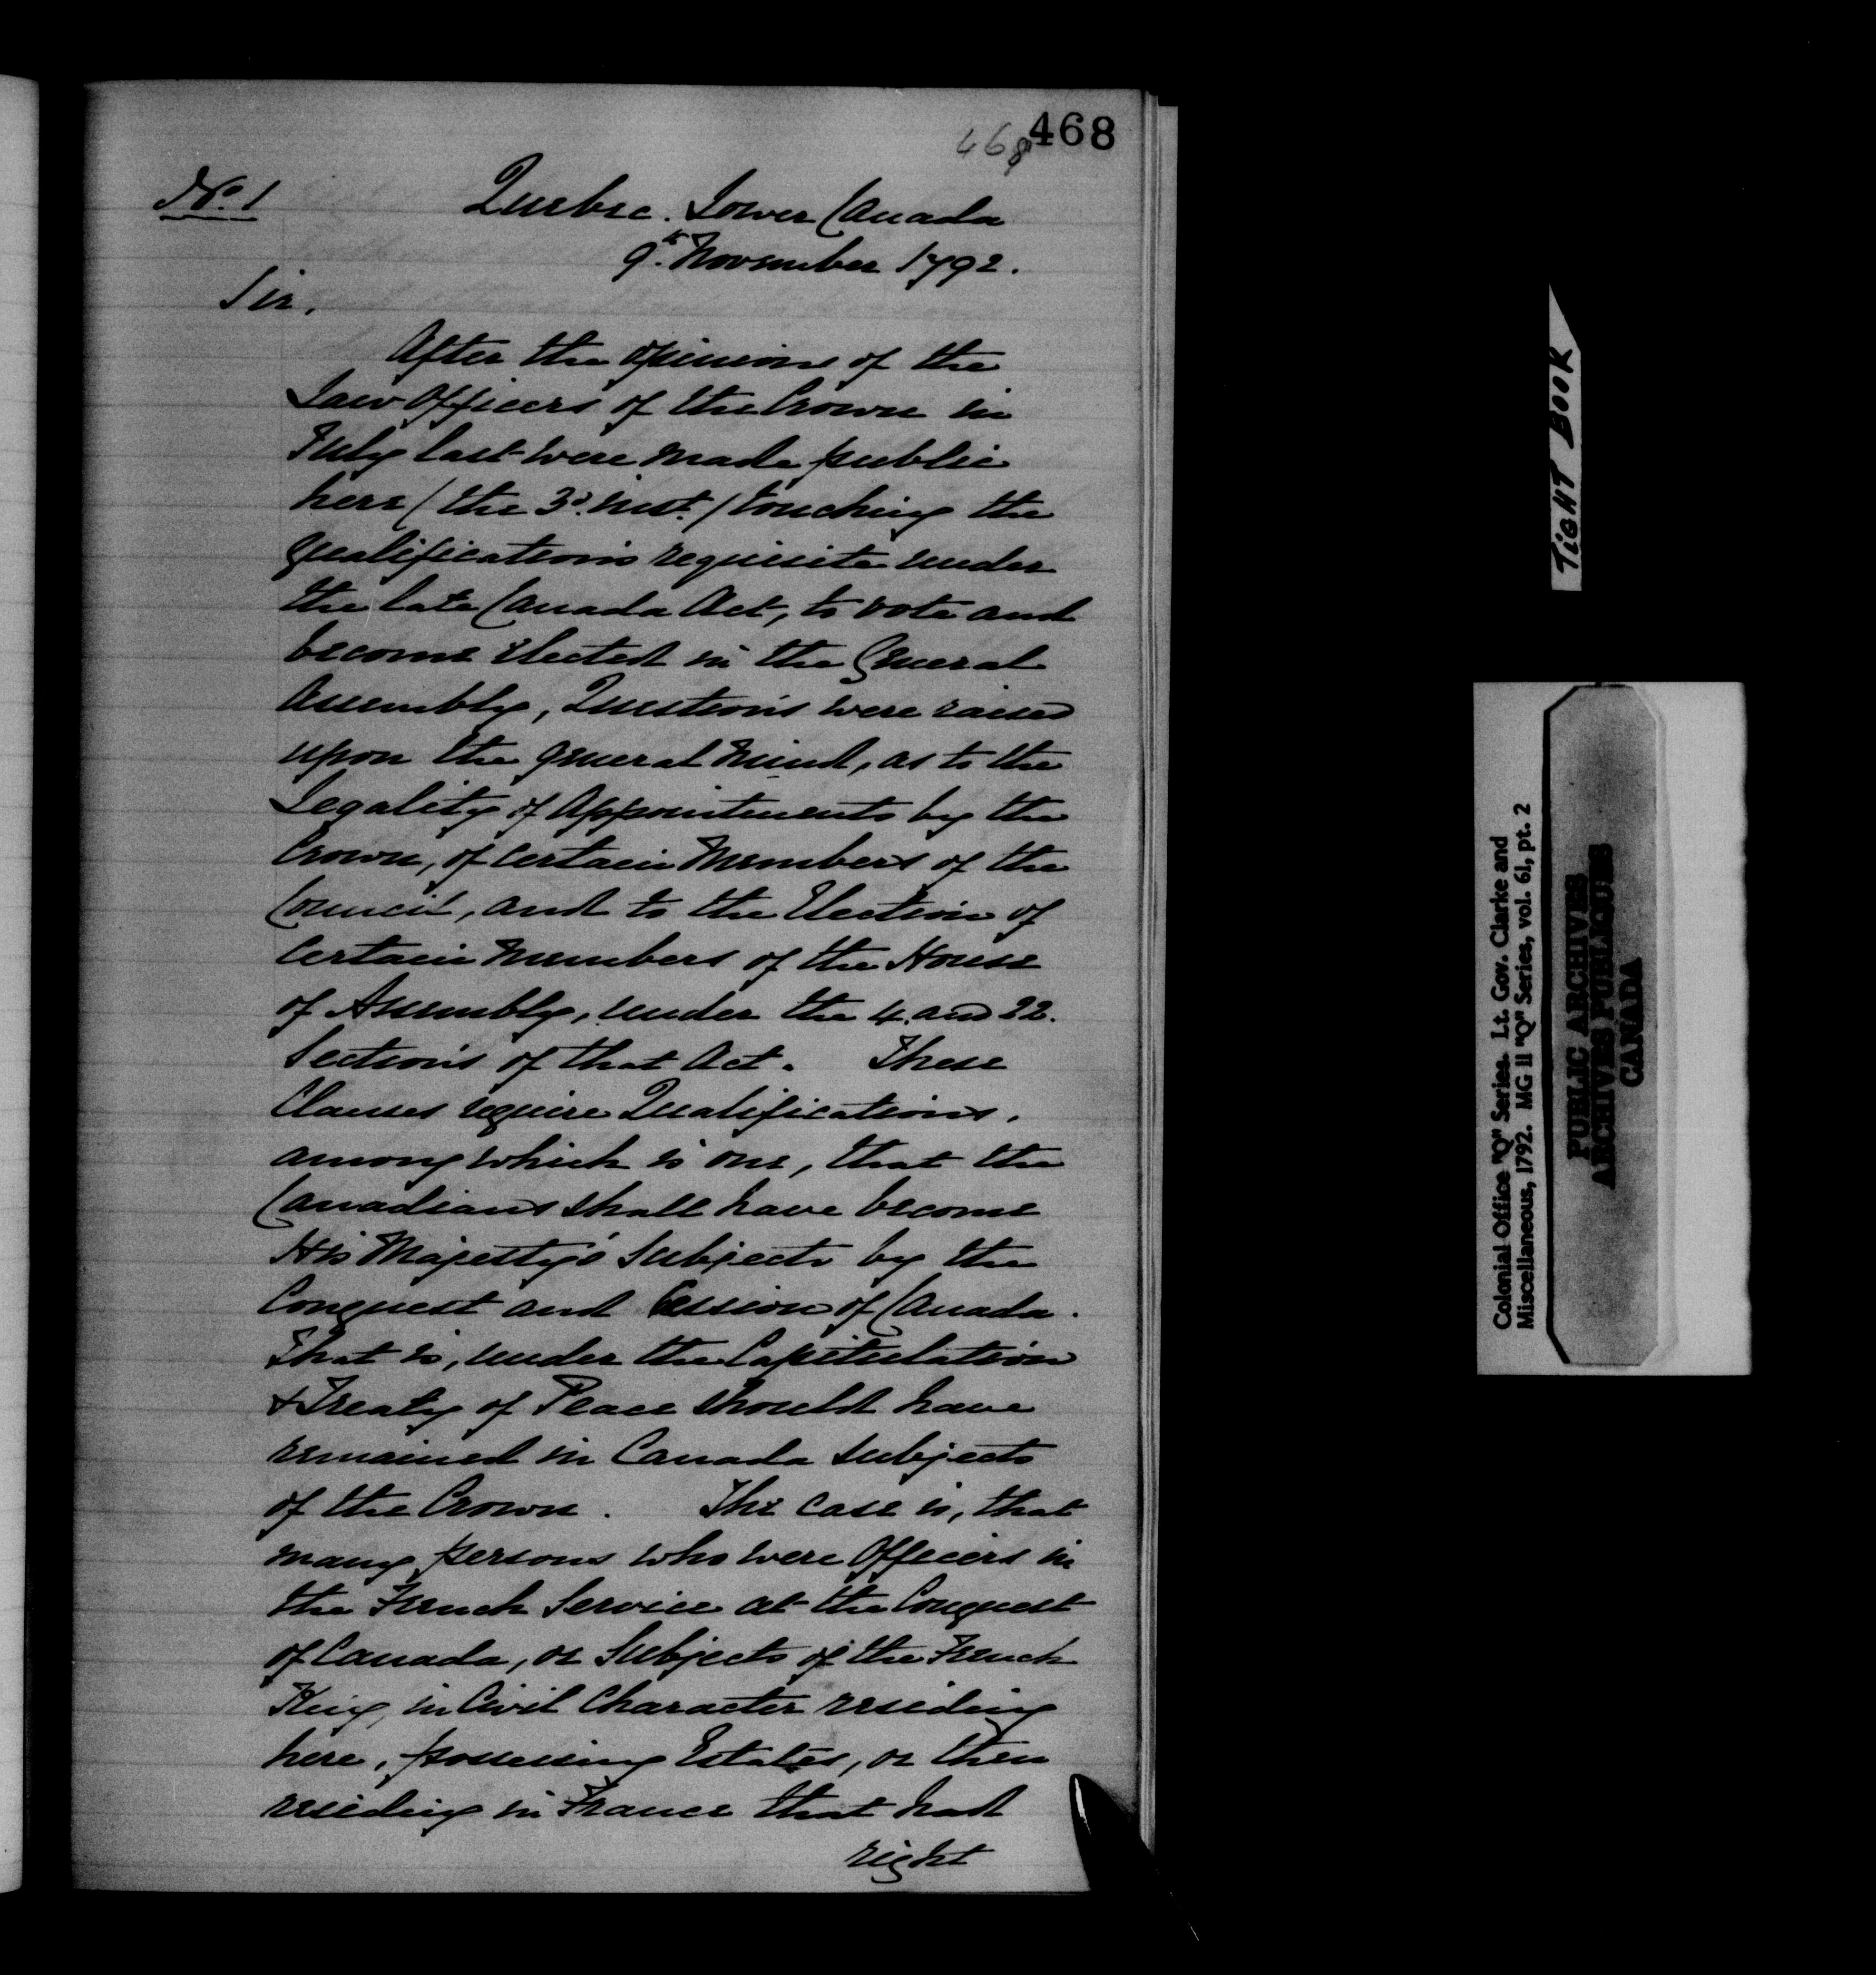 468
468
No. 1
Quebec. Lower Canada
9th November 1792.
Sir,
After the opinions of the
Law Officers of the Crown in
July last were made public
here (the 3d. inst.) touching the
qualifications requisite under
the late Canada Act, to vote and
become elected in the General
Assembly, Questions were raised
upon the general mind, as to the
Legality of Appointments by the
Crown, of certain Members of the
Council, and to the Election of
certain Members of the House
of Assembly, under the 4. and 22.
Sections of that Act. These
Clauses require Qualifications,
among which is one, that the
Canadians shall have become
His Majesty's Subjects by the
Conquest and Cession of Canada.
That is, under the Capitulation
& Treaty of Peace should have
remained in Canada subjects
of the Crown. The case is, that
many persons who were Officers in
the French Service at the Conquest
of Canada, or Subjects of the French
King, in Civil Character residing
here, possessing Estates, or then
residing in France that had
right
TIGHT BOOK
Colonial Office "Q" Series. Lt. Gov. Clarke and
Miscellaneous, 1792. MG 11 "Q" Series, vol. 61, pt. 2
PUBLIC ARCHIVES
ARCHIVES PUBLIQUES
CANADA